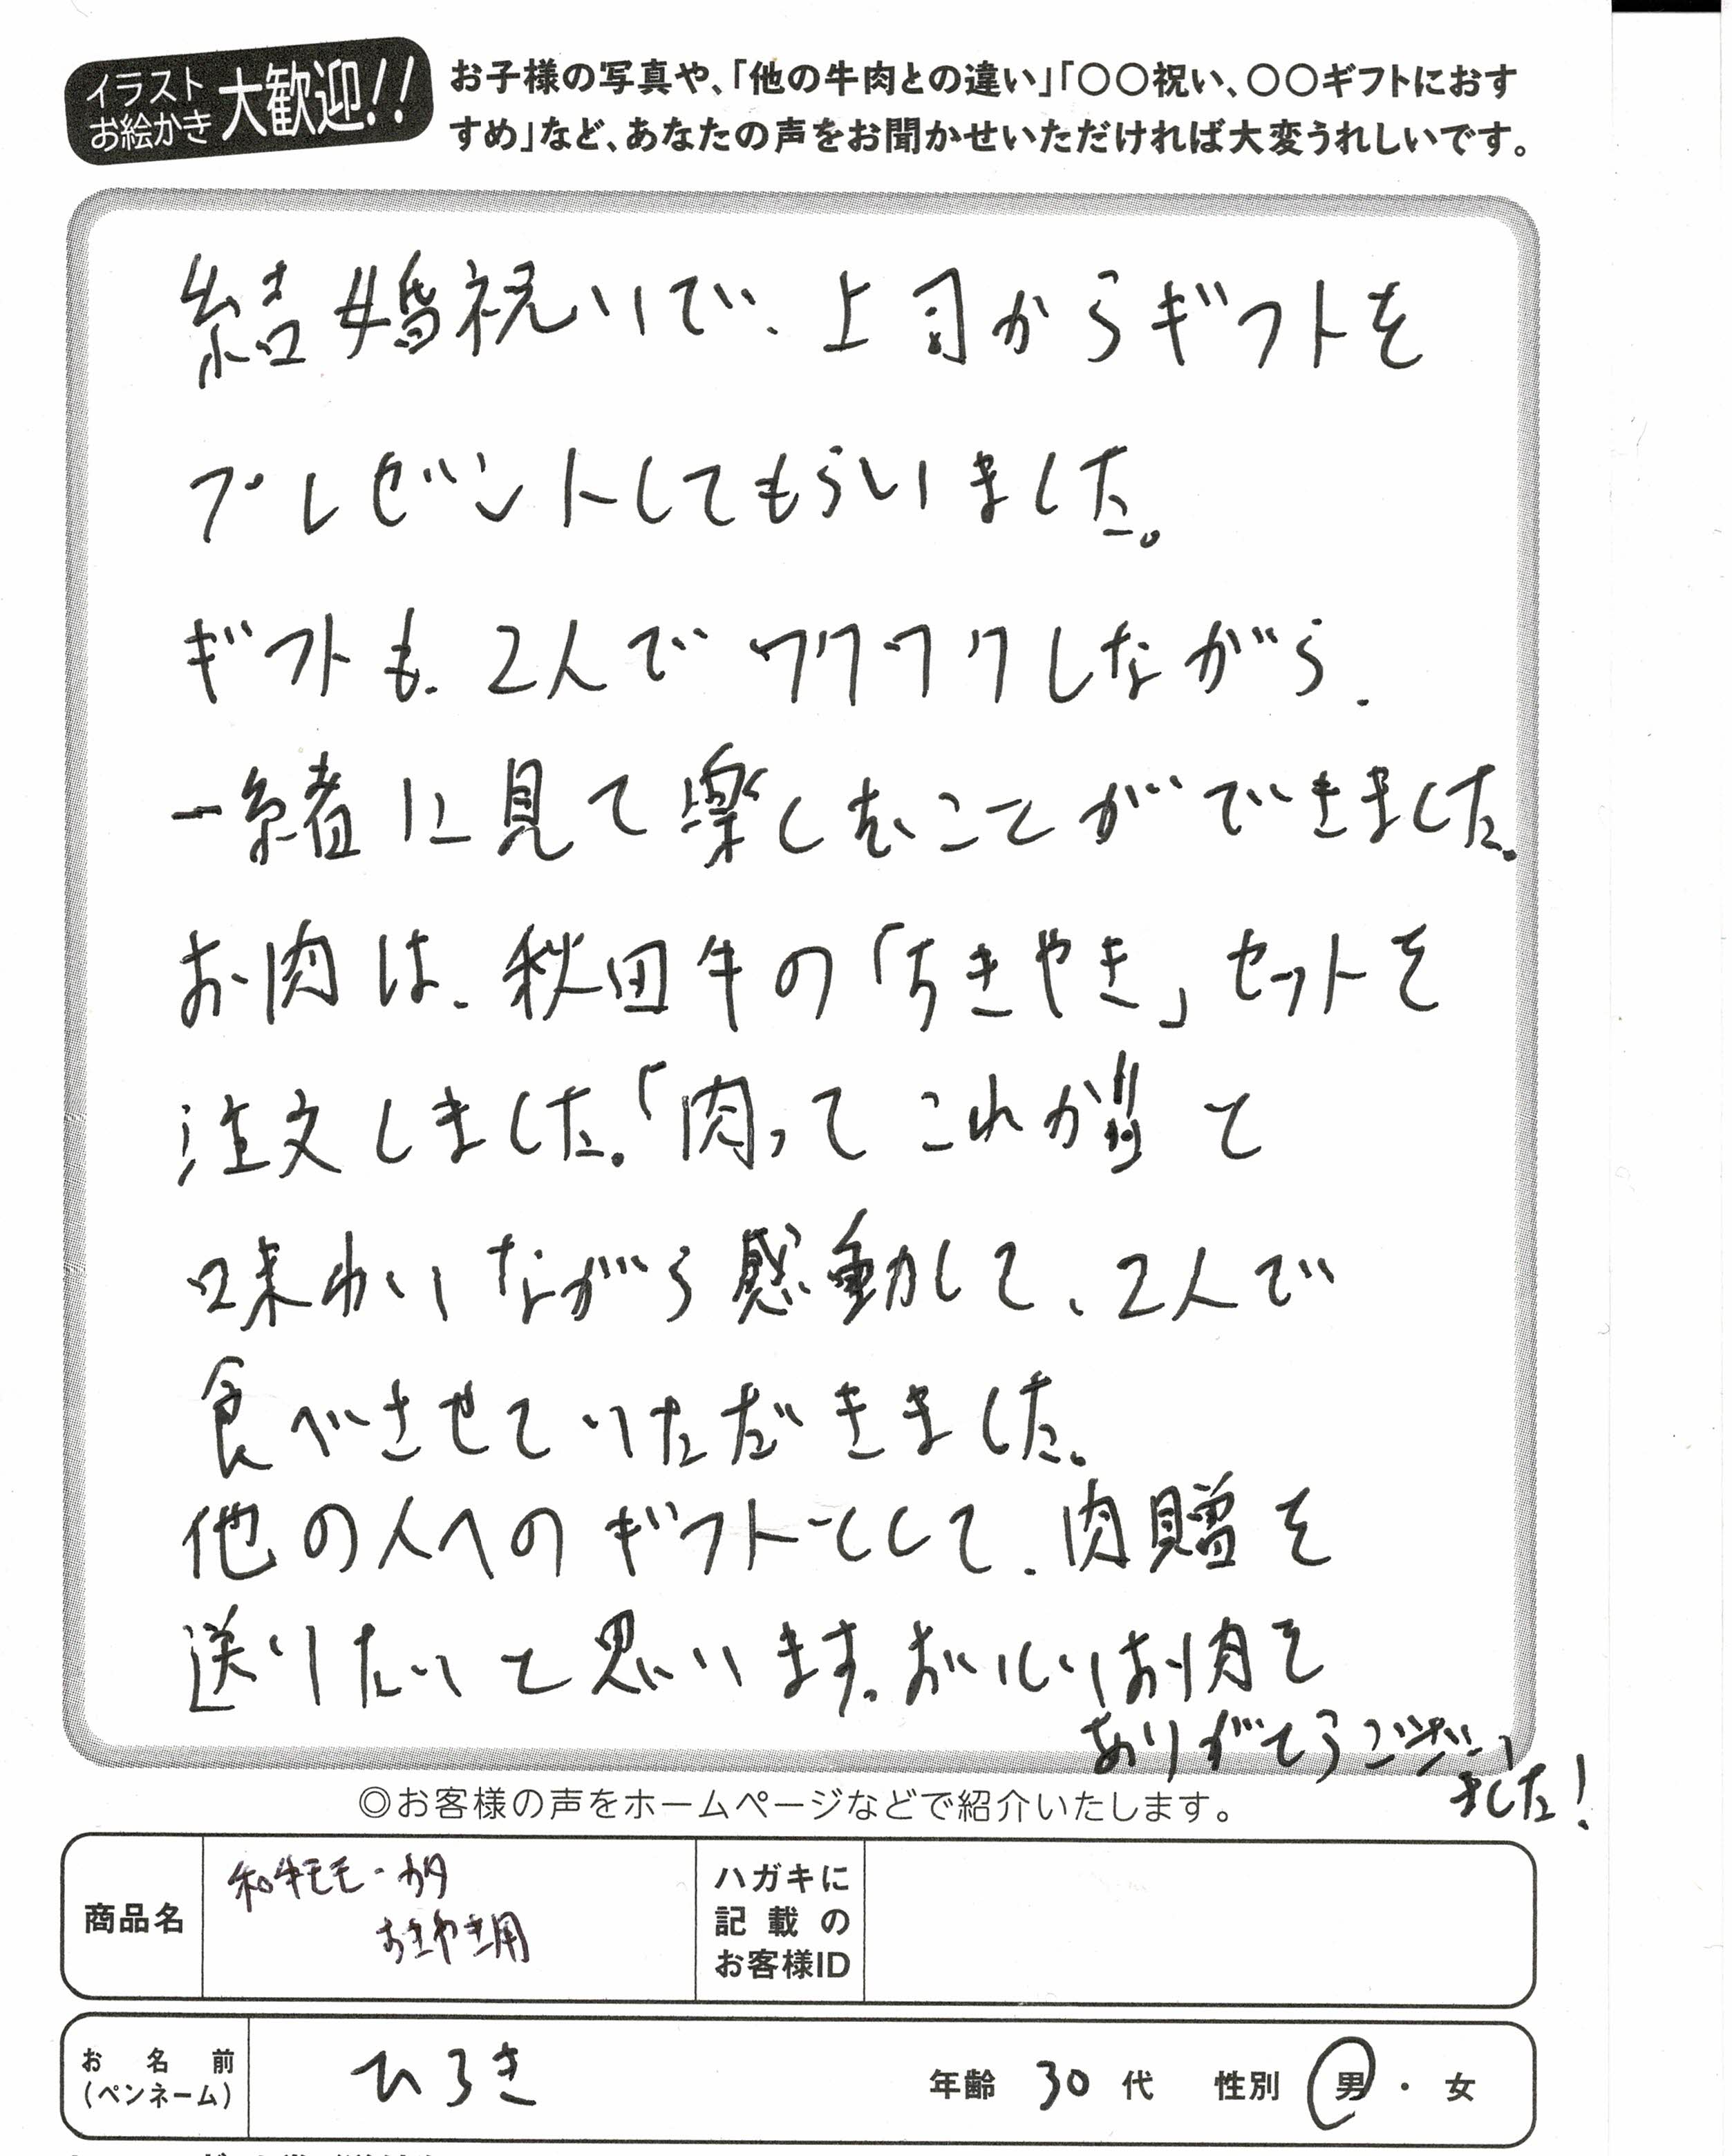 イラスト
お絵かき
大歓迎!!
お子様の写真や、「他の牛肉との違い」「〇〇祝い、〇〇ギフトにおす
すめ」など、あなたの声をお聞かせいただければ大変うれしいです。
結婚祝いで、上司からギフトを
プレゼントしてもらいました。
ギフトも、2人でワクワクしながら、
一緒に見て楽しむことができました。
お肉は、秋田牛の「すきやき」セットを
注文しました。「肉ってこれか!!」と
味わいながら感動して、2人で
食べさせていただきました。
他の人へのギフトとして、肉贈を
送りたいと思います。おいしいお肉を
ありがとうござい
ました!
◎お客様の声をホームページなどで紹介いたします。
商品名
和牛モモ・カタ
すきやき用
ハガキに
記載の
お客様ID
お名前
(ペンネーム)
ひろき
年齢 30 代 性別 男・女